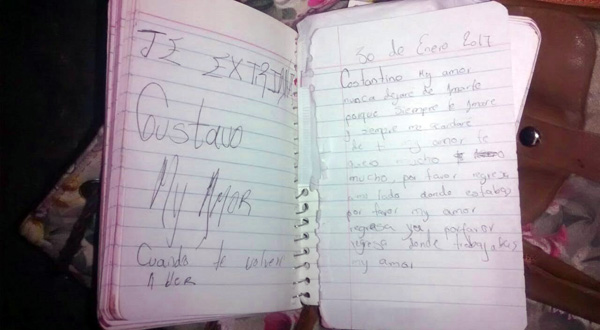 TE EXTRAÑO
Gustavo
My AMOR
Cuando te volveré
A VER
30 de Enero 2017
Costantino My amor
nunca dejare de Amarte
porque siempre te Amare
y siempre me acordare
de ti my amor te
quiero mucho
mucho por favor regresa
a mi lado donde estabas
por favor my amor
regresa ya porfavor
regresa donde trabajabas
my amor